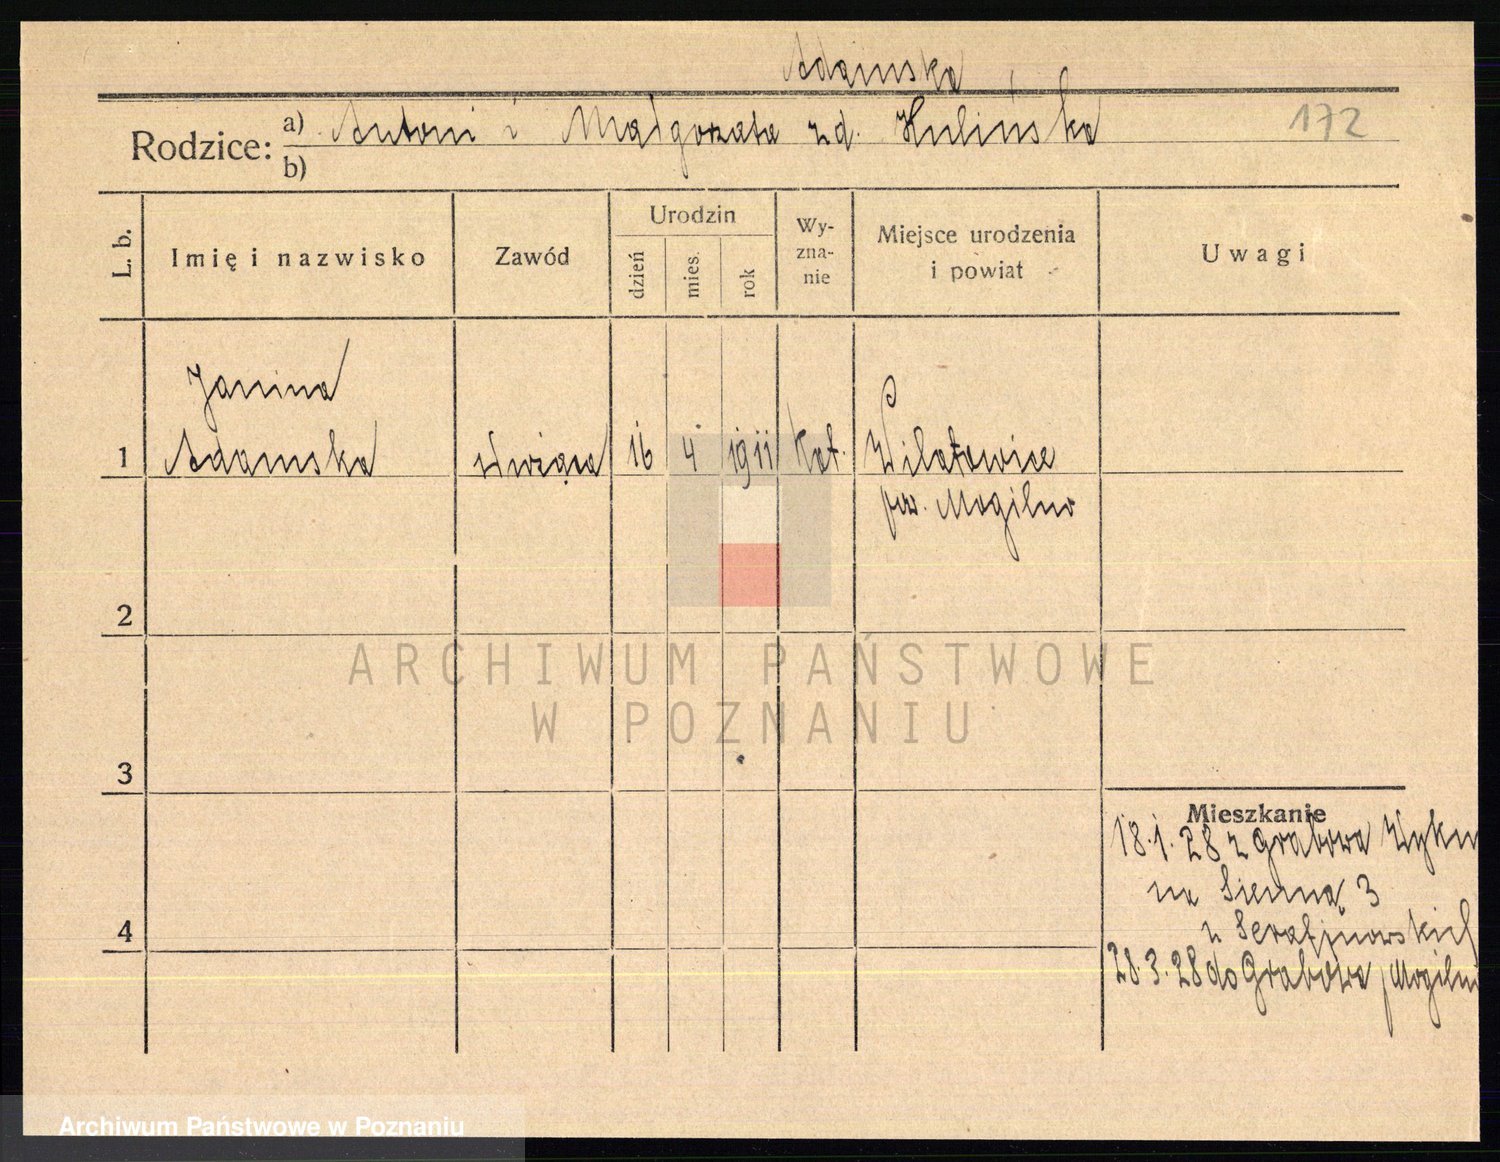 Adamska
Rodzice: a) Antoni i Małgorzata zd. Kulińska
172
b)
L. b.
Imię i nazwisko
Zawód
Urodzin
dzień
mies.
rok
Wy-
zna-
nie
Miejsce urodzenia
i powiat
Uwagi
Janina
1 Adamska 16 4 1911 Kat. Wilatowice
pow. Mogilno
2
ARCHIWUM PAŃSTWOWE
W POZNANIU
3
Mieszkanie
18.1.28 z Grabowa
na Sienną 3
u Serafinowskich
4
28.3.28 do Grabowa p. Mogilno
Archiwum Państwowe w Poznaniu